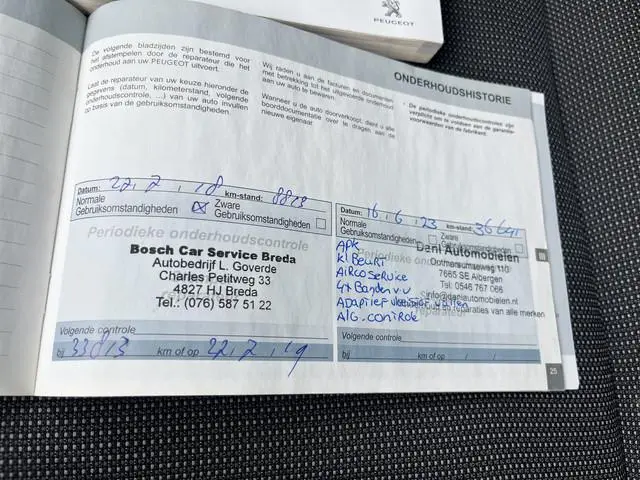 PEUGEOT
ONDERHOUDSHISTORIE
De volgende bladzijden zijn bestemd voor
het afstempelen door de reparateur die het
onderhoud aan uw PEUGEOT uitvoert.
Laat de reparateur van uw keuze hieronder de
gegevens (datum, kilometerstand, volgende
onderhoudscontrole, ...) van uw auto invullen
op basis van de gebruiksomstandigheden.
Wij raden u aan de facturen en documenten
met betrekking tot het uitgevoerde onderhoud
aan uw auto te bewaren.
Wanneer u de auto doorverkoopt, dient u alle
boorddocumentatie over te dragen aan de
nieuwe eigenaar.
* De periodieke onderhoudscontroles zijn
verplicht om te voldoen aan de garantie-
voorwaarden van de fabrikant.
Datum: 22, 2, 18 km-stand:
Normale
Gebruiksomstandigheden
Zware
Gebruiksomstandigheden
Periodieke onderhoudscontrole
Bosch Car Service Breda
Autobedrijf L. Goverde
Charles Petitweg 33
4827 HJ Breda
Tel.: (076) 587 51 22
Volgende controle
bij 33813 km of op 22, 2, 19
Datum: 16, 6, 23 km-stand: 36641
Normale
Gebruiksomstandigheden
Zware
Gebruiksomstandigheden
APK
KL Beurt
Airco service
4x Banden v.v
Adaptief
Alg. controle
Dani Automobielen
Ootmarsumseweg 110
7665 SE Albergen
Tel: 0546 767 066
info@daniautomobielen.nl
reparaties van alle merken
Volgende controle
bij km of op / /
III
25